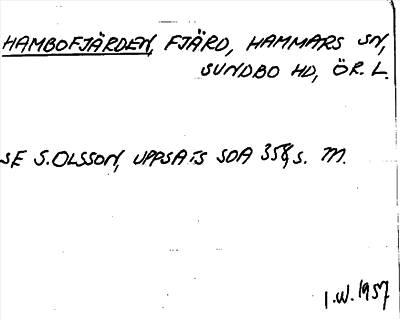 HAMBOFJÄRDEN, FJÄRD, HAMMARS SN,
SUNDBO HD, ÖR. L.
SE S. OLSSON, UPPSATS SOA 358, S. M.
I.W. 1957